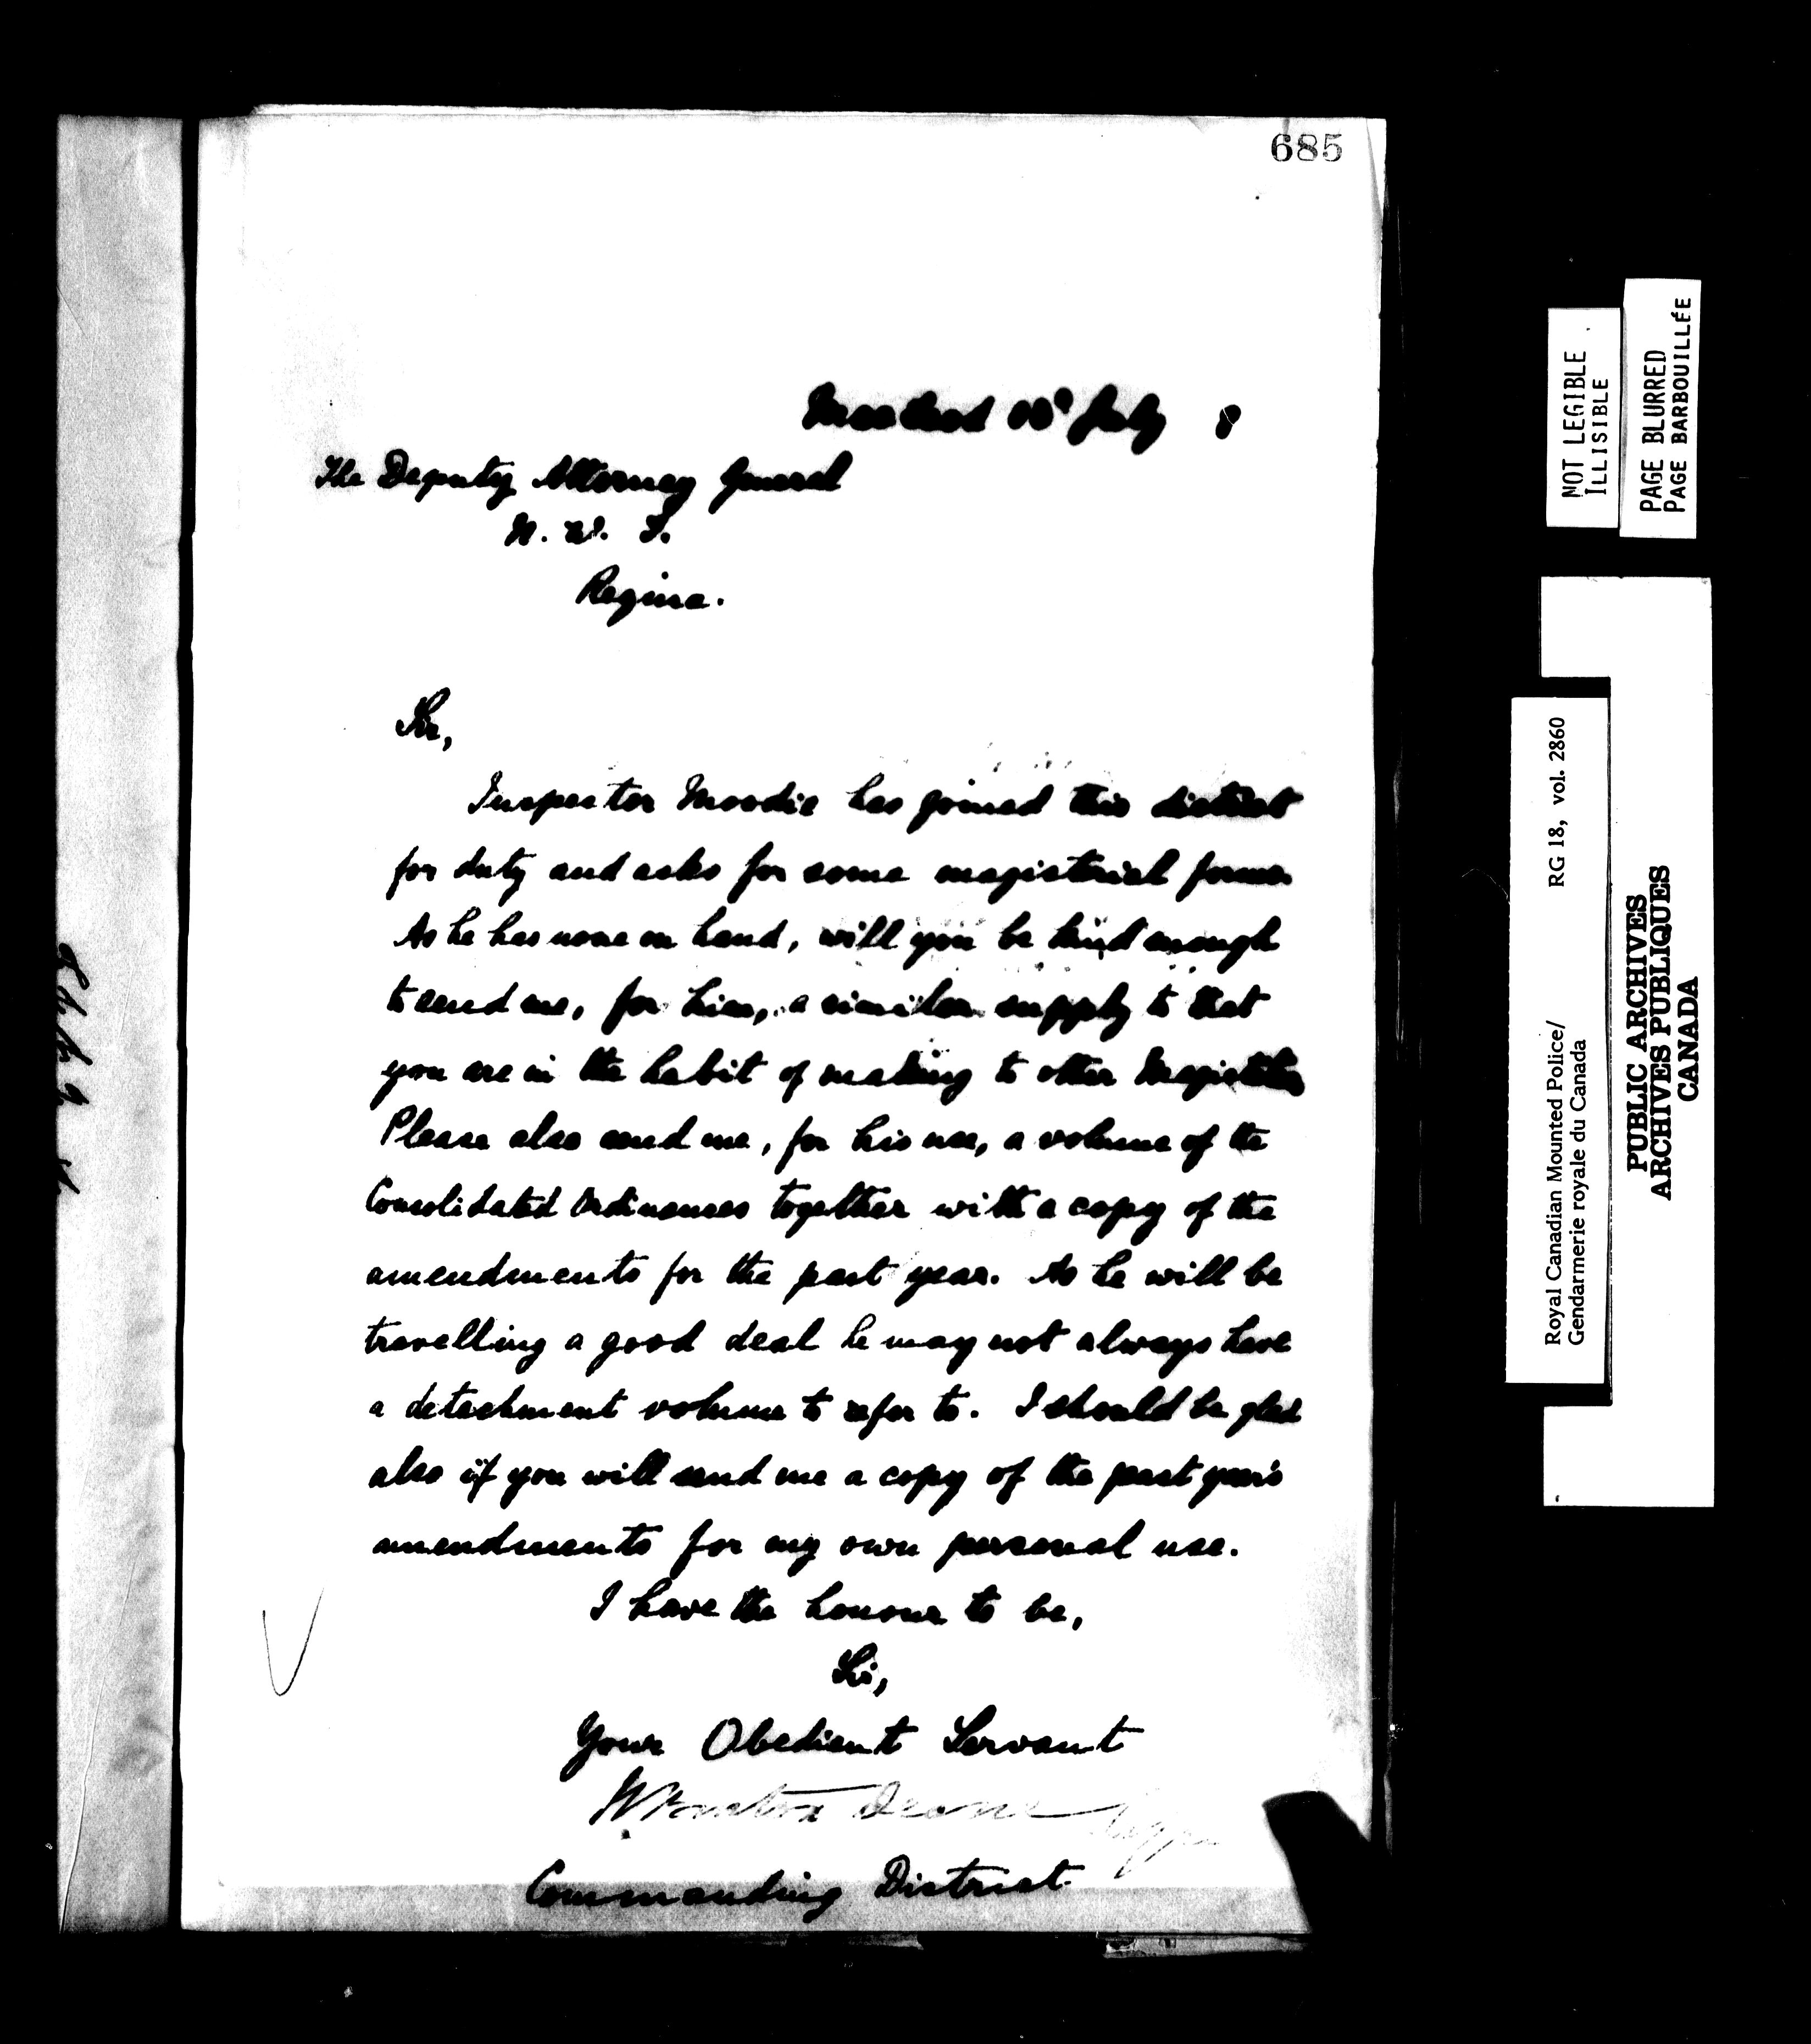 685
Macleod 10th July 8
The Deputy Attorney General
N. W. T.
Regina.
Sir,
Inspector Moodie has joined this district
for duty and asks for some magisterial forms
As he has none on hand, will you be kind enough
to send me, for him, a similar supply to that
you are in the habit of making to other Magistrates
Please also send me, for his use, a volume of the
Consolidated Ordinances together with a copy of the
amendments for the past year. As he will be
travelling a good deal he may not always have
a detachment volume to refer to. I should be glad
also if you will send me a copy of the past year's
amendments for my own personal use.
I have the honour to be,
Sir,
Your Obedient Servant
Deane Supt
Commanding District.
NOT LEGIBLE
ILLISIBLE
PAGE BLURRED
PAGE BARBOUILLÉE
Royal Canadian Mounted Police/ RG 18, vol. 2860
Gendarmerie royale du Canada
PUBLIC ARCHIVES
ARCHIVES PUBLIQUES
CANADA